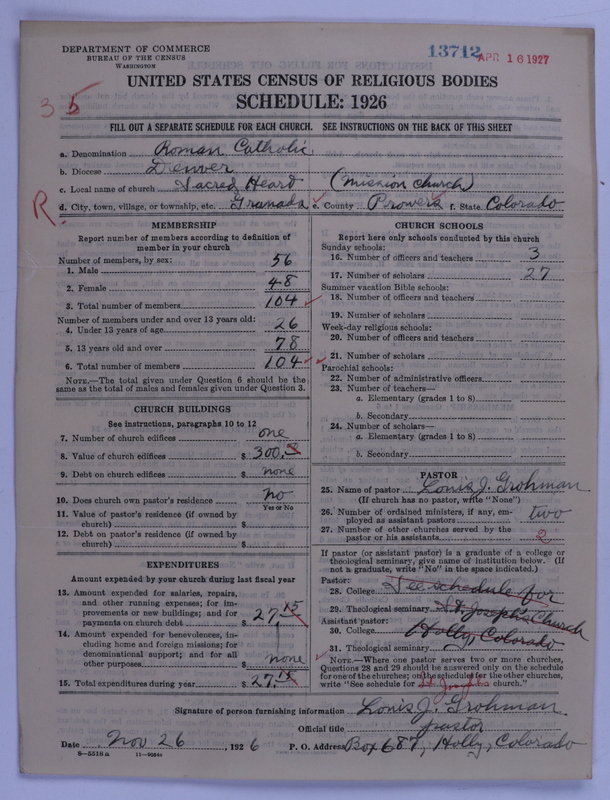 DEPARTMENT OF COMMERCE
BUREAU OF THE CENSUS
WASHINGTON
13712
APR 16 1927
UNITED STATES CENSUS OF RELIGIOUS BODIES
SCHEDULE: 1926
3 5
FILL OUT A SEPARATE SCHEDULE FOR EACH CHURCH. SEE INSTRUCTIONS ON THE BACK OF THIS SHEET
a. Denomination Roman Catholic
b. Diocese Denver
c. Local name of church Sacred Heard (Mission church)
R. d. City, town, village, or township, etc. Granada e. County Prowers f. State Colorado
MEMBERSHIP
Report number of members according to definition of
member in your church
Number of members, by sex:
1. Male 56
2. Female 48
3. Total number of members 104
Number of members under and over 13 years old:
4. Under 13 years of age 26
5. 13 years old and over 78
6. Total number of members 104
NOTE.—The total given under Question 6 should be the
same as the total of males and females given under Question 3.
CHURCH BUILDINGS
See instructions, paragraphs 10 to 12
7. Number of church edifices one
8. Value of church edifices $ 300.
9. Debt on church edifices $ none
10. Does church own pastor's residence no
Yes or No
11. Value of pastor's residence (if owned by
church) $
12. Debt on pastor's residence (if owned by
church) $
EXPENDITURES
Amount expended by your church during last fiscal year
13. Amount expended for salaries, repairs,
and other running expenses; for im-
provements or new buildings; and for
payments on church debt $ 27.15
14. Amount expended for benevolences, in-
cluding home and foreign missions; for
denominational support; and for all
other purposes none
15. Total expenditures during year $ 27.15
CHURCH SCHOOLS
Report here only schools conducted by this church
Sunday schools:
16. Number of officers and teachers 3
17. Number of scholars 27
Summer vacation Bible schools:
18. Number of officers and teachers
19. Number of scholars
Week-day religious schools:
20. Number of officers and teachers
21. Number of scholars
Parochial schools:
22. Number of administrative officers
23. Number of teachers—
a. Elementary (grades 1 to 8)
b. Secondary
24. Number of scholars—
a. Elementary (grades 1 to 8)
b. Secondary
PASTOR
25. Name of pastor Louis J. Grohman
(If church has no pastor, write "None")
26. Number of ordained ministers, if any, em-
ployed as assistant pastors two
27. Number of other churches served by the
pastor or his assistants 2
If pastor (or assistant pastor) is a graduate of a college or
theological seminary, give name of institution below. (If
not a graduate, write "No" in the space indicated.)
Pastor:
28. College See schedule for
29. Theological seminary St. Joseph's Church
Assistant pastor:
30. College Holly, Colorado
31. Theological seminary
NOTE.—Where one pastor serves two or more churches,
Questions 28 and 29 should be answered only on the schedule
for one of the churches; on the schedules for the other churches,
write "See schedule for St. Joseph's church."
Signature of person furnishing information Louis J. Grohman
Official title pastor
Date Nov 26, 1926 P. O. Address Box 687, Holly, Colorado